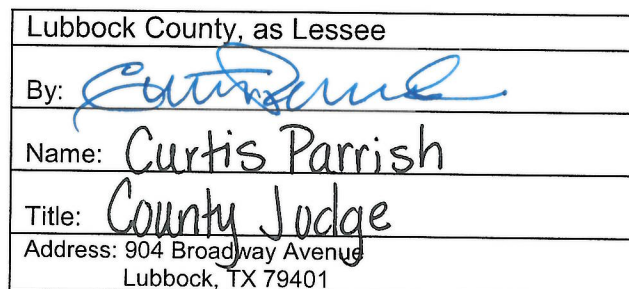 Lubbock County, as Lessee
By: Curtis Parrish
Name: Curtis Parrish
Title: County Judge
Address: 904 Broadway Avenue
Lubbock, TX 79401